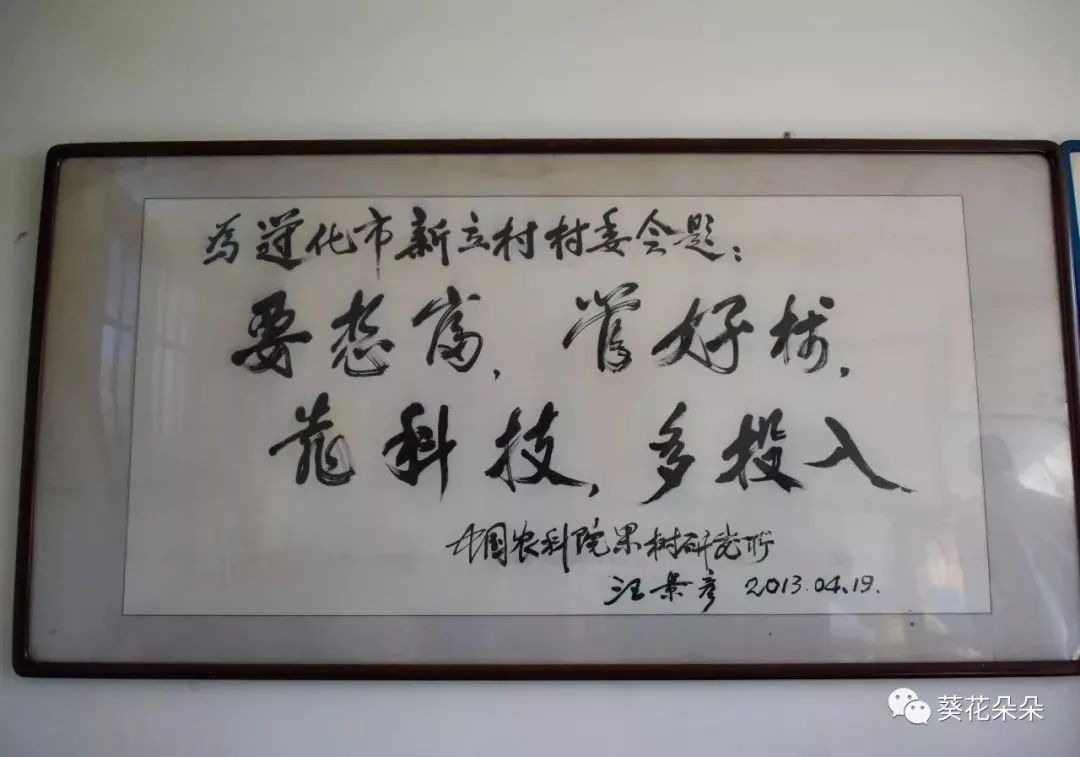 为遵化市新立村村委会题：
要想富，管好树，
靠科技，多投入．
中国农科院果树研究所
汪景彦 2013.04.19.
葵花朵朵